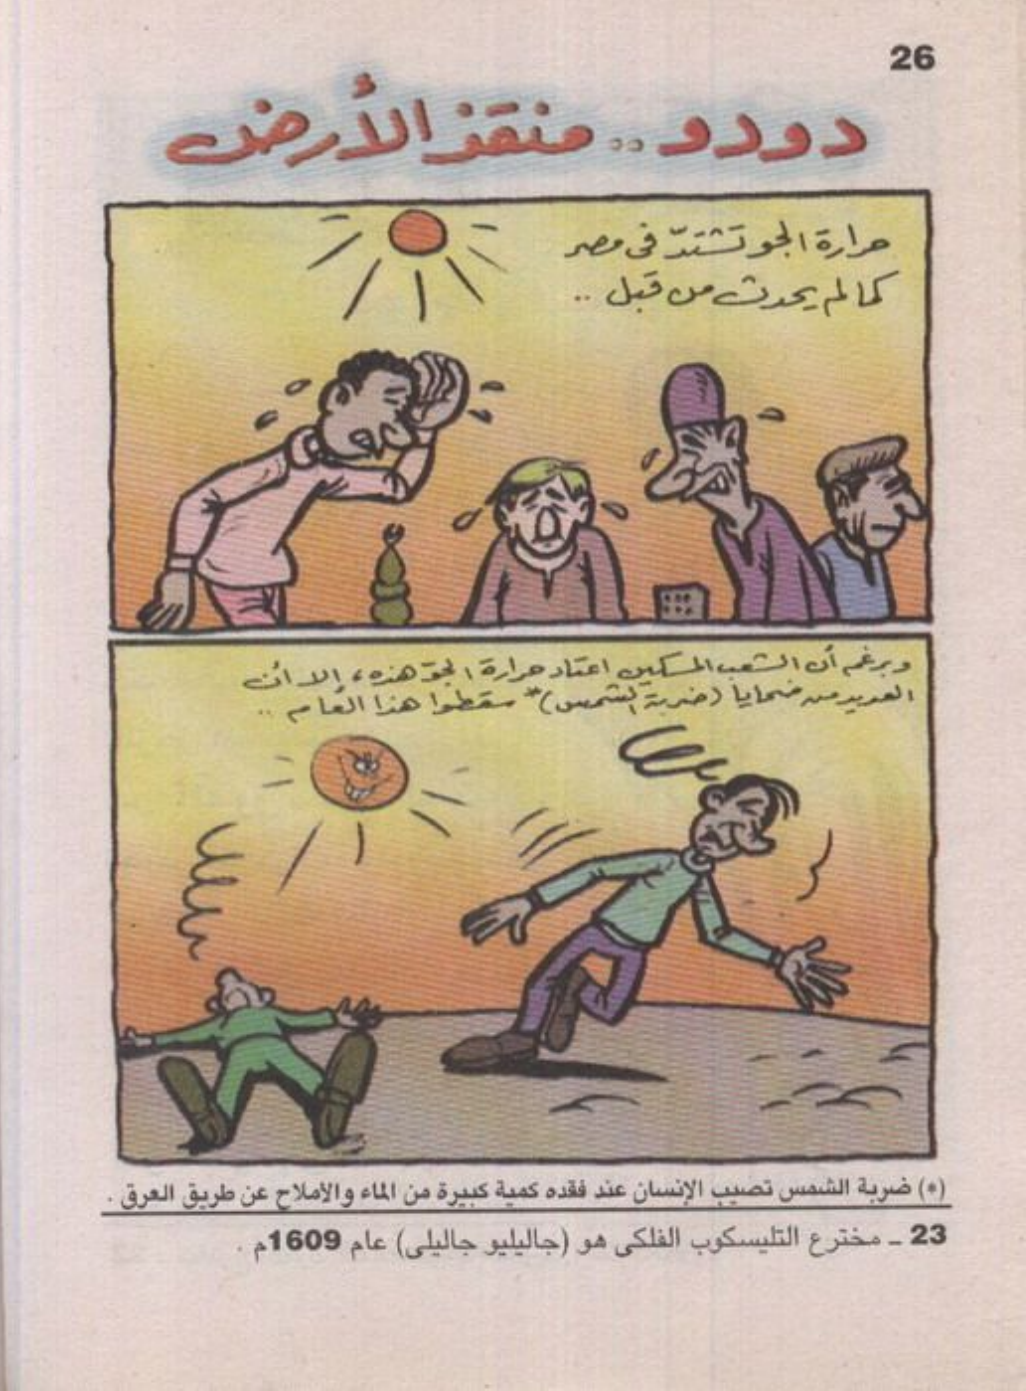 26
دودو .. منقذ الأرض
حرارة الجو تشتدّ فى مصر
كما لم يحدث من قبل ..
وبرغم أن الشعب المسكين اعتاد حرارة الجوّ هذه، إلا أن
العديد من ضحايا (ضربة الشمس)* سقطوا هذا العام ..
(*) ضربة الشمس تصيب الإنسان عند فقده كمية كبيرة من الماء والأملاح عن طريق العرق .
23 ــ مخترع التليسكوب الفلكى هو (جاليليو جاليلى) عام 1609م .